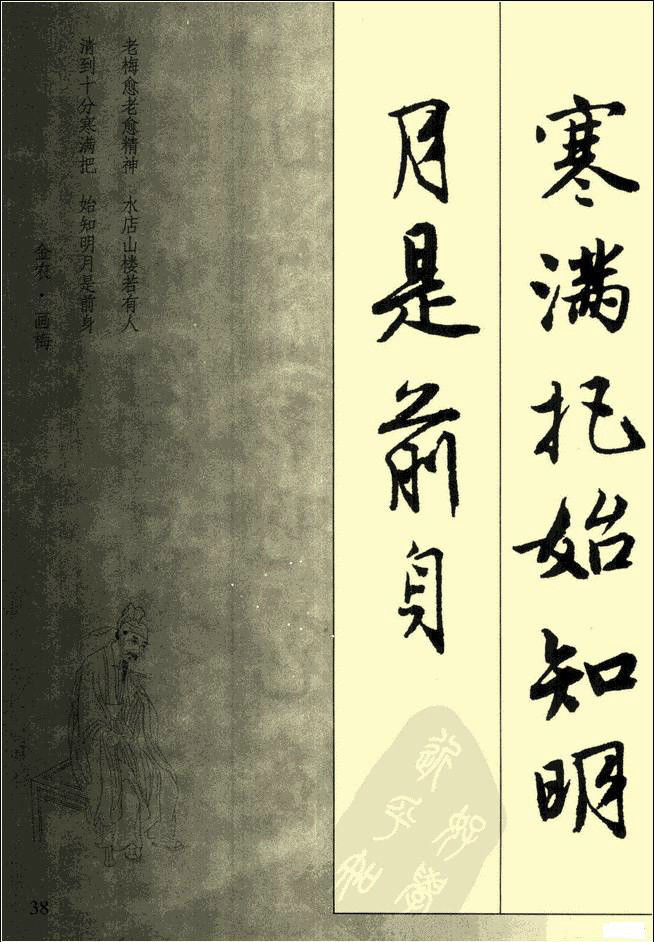 寒满把始知明
月是前身
老梅愈老愈精神 水店山楼若有人
清到十分寒满把 始知明月是前身
金农·画梅
38